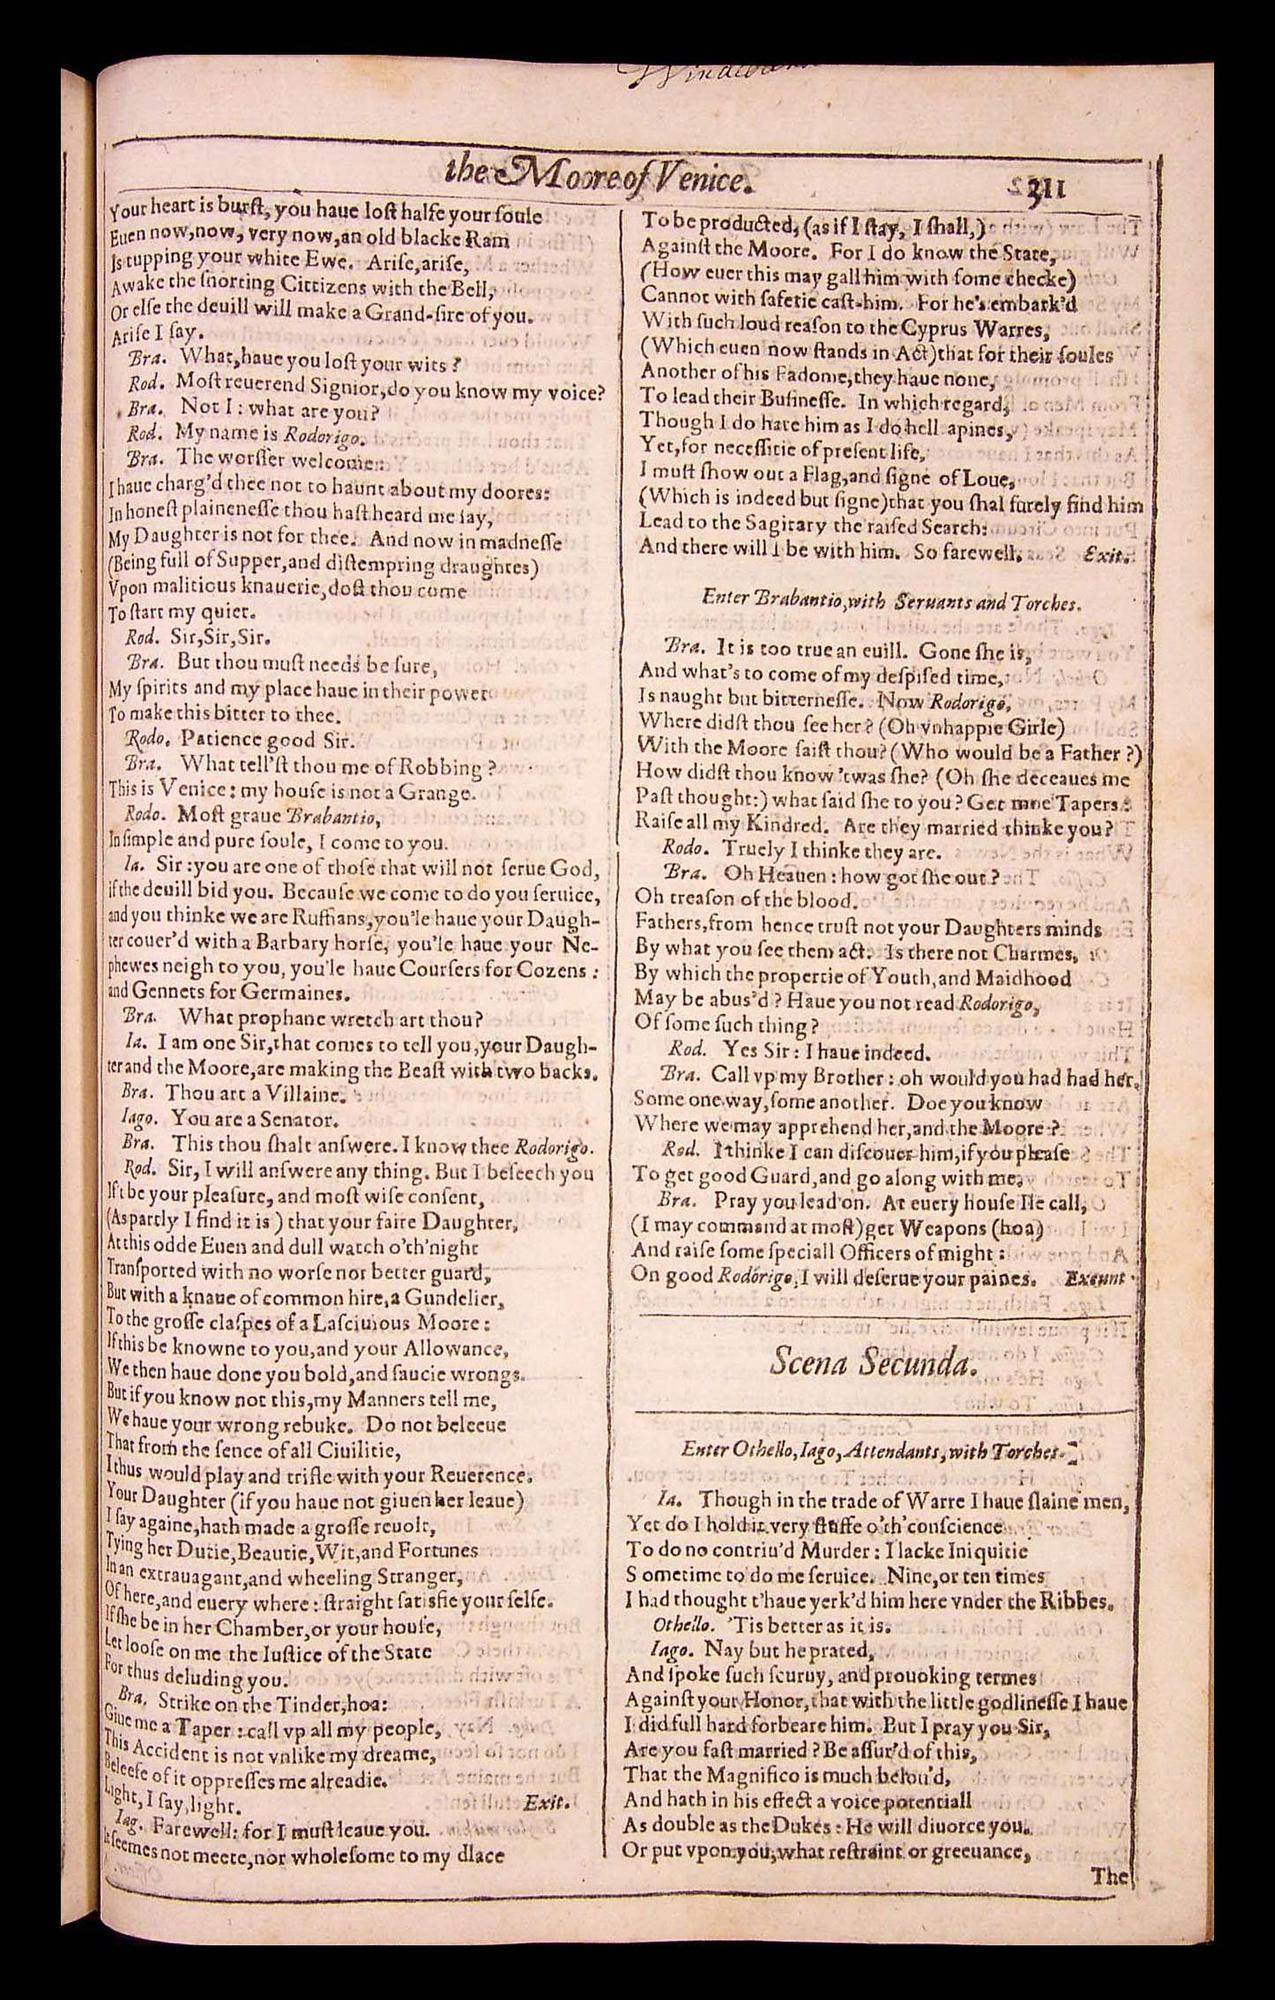 the Moore of Venice. 311
Your heart is burst, you haue lost halfe your soule
Euen now, now, very now, an old blacke Ram
Is tupping your white Ewe. Arise, arise,
Awake the snorting Cittizens with the Bell,
Or else the deuill will make a Grand-sire of you.
Arise I say.
Bra. What, haue you lost your wits?
Rod. Most reuerend Signior, do you know my voice?
Bra. Not I: what are you?
Rod. My name is Rodorigo.
Bra. The worsser welcome:
I haue charg'd thee not to haunt about my doores:
In honest plainenesse thou hast heard me say,
My Daughter is not for thee. And now in madnesse
(Being full of Supper, and distempring draughtes)
Vpon malitious knauerie, dost thou come
To start my quiet.
Rod. Sir, Sir, Sir.
Bra. But thou must needs be sure,
My spirits and my place haue in their power
To make this bitter to thee.
Rodo. Patience good Sir.
Bra. What tell'st thou me of Robbing?
This is Venice: my house is not a Grange.
Rodo. Most graue Brabantio,
In simple and pure soule, I come to you.
Ia. Sir: you are one of those that will not serue God,
if the deuill bid you. Because we come to do you seruice,
and you thinke we are Ruffians, you'le haue your Daugh-
ter couer'd with a Barbary horse, you'le haue your Ne-
phewes neigh to you, you'le haue Coursers for Cozens:
and Gennets for Germaines.
Bra. What prophane wretch art thou?
Ia. I am one Sir, that comes to tell you, your Daugh-
ter and the Moore, are making the Beast with two backs.
Bra. Thou art a Villaine.
Iago. You are a Senator.
Bra. This thou shalt answere. I know thee Rodorigo.
Rod. Sir, I will answere any thing. But I beseech you
If't be your pleasure, and most wise consent,
(As partly I find it is) that your faire Daughter,
At this odde Euen and dull watch o'th'night
Transported with no worse nor better guard,
But with a knaue of common hire, a Gundelier,
To the grosse claspes of a Lasciuious Moore:
If this be knowne to you, and your Allowance,
We then haue done you bold, and saucie wrongs.
But if you know not this, my Manners tell me,
We haue your wrong rebuke. Do not beleeue
That from the sence of all Ciuilitie,
I thus would play and trifle with your Reuerence.
Your Daughter (if you haue not giuen her leaue)
I say againe, hath made a grosse reuolt,
Tying her Dutie, Beautie, Wit, and Fortunes
In an extrauagant, and wheeling Stranger,
Of here, and euery where: straight satisfie your selfe.
If she be in her Chamber, or your house,
Let loose on me the Iustice of the State
For thus deluding you.
Bra. Strike on the Tinder, hoa:
Giue me a Taper: call vp all my people,
This Accident is not vnlike my dreame,
Beleefe of it oppresses me alreadie.
Light, I say, light. Exit.
Iag. Farewell: for I must leaue you.
It seemes not meete, nor wholesome to my dlace
To be producted, (as if I stay, I shall,)
Against the Moore. For I do know the State,
(How euer this may gall him with some checke)
Cannot with safetie cast-him. For he's embark'd
With such loud reason to the Cyprus Warres,
(Which euen now stands in Act) that for their soules
Another of his Fadome, they haue none,
To lead their Businesse. In which regard,
Though I do hate him as I do hell apines,
Yet, for necessitie of present life,
I must show out a Flag, and signe of Loue,
(Which is indeed but signe) that you shal surely find him
Lead to the Sagitary the raised Search:
And there will I be with him. So farewell. Exit.
Enter Brabantio, with Seruants and Torches.
Bra. It is too true an euill. Gone she is,
And what's to come of my despised time,
Is naught but bitternesse. Now Rodorigo,
Where didst thou see her? (Oh vnhappie Girle)
With the Moore saist thou? (Who would be a Father?)
How didst thou know 'twas she? (Oh she deceaues me
Past thought:) what said she to you? Get moe Tapers:
Raise all my Kindred. Are they married thinke you?
Rodo. Truely I thinke they are.
Bra. Oh Heauen: how got she out?
Oh treason of the blood.
Fathers, from hence trust not your Daughters minds
By what you see them act. Is there not Charmes,
By which the propertie of Youth, and Maidhood
May be abus'd? Haue you not read Rodorigo,
Of some such thing?
Rod. Yes Sir: I haue indeed.
Bra. Call vp my Brother: oh would you had had her.
Some one way, some another. Doe you know
Where we may apprehend her, and the Moore?
Rod. I thinke I can discouer him, if you please
To get good Guard, and go along with me.
Bra. Pray you lead on. At euery house Ile call,
(I may command at most) get Weapons (hoa)
And raise some speciall Officers of might:
On good Rodorigo, I will deserue your paines. Exeunt.
Scena Secunda.
Enter Othello, Iago, Attendants, with Torches.
Ia. Though in the trade of Warre I haue slaine men,
Yet do I hold it very stuffe o'th'conscience
To do no contriu'd Murder: I lacke Iniquitie
Sometime to do me seruice. Nine, or ten times
I had thought t'haue yerk'd him here vnder the Ribbes.
Othello. 'Tis better as it is.
Iago. Nay but he prated,
And spoke such scuruy, and prouoking termes
Against your Honor, that with the little godlinesse I haue
I did full hard forbeare him. But I pray you Sir,
Are you fast married? Be assur'd of this,
That the Magnifico is much belou'd,
And hath in his effect a voice potentiall
As double as the Dukes: He will diuorce you.
Or put vpon you, what restraint or greeuance,
The